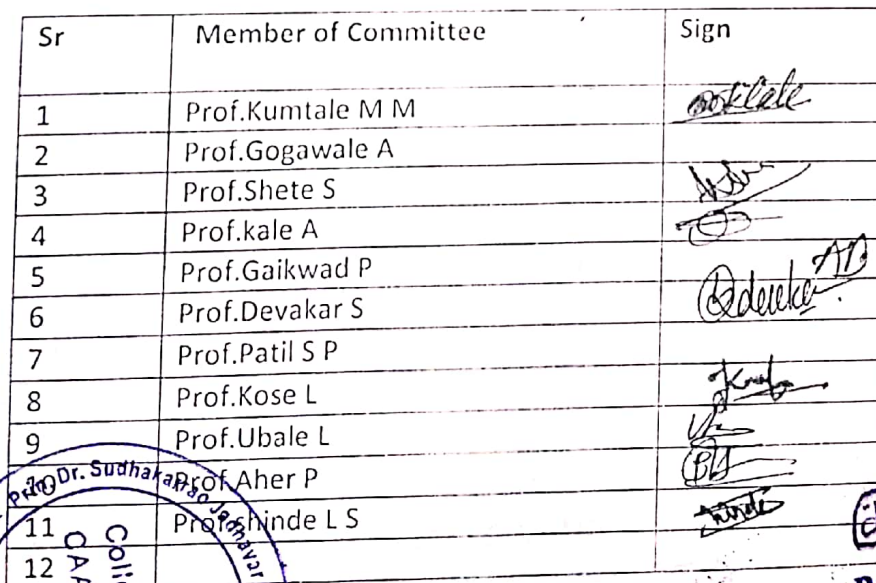 Sr Member of Committee Sign
1 Prof.Kumtale M M
2 Prof.Gogawale A
3 Prof.Shete S
4 Prof.kale A
5 Prof.Gaikwad P
6 Prof.Devakar S
7 Prof.Patil S P
8 Prof.Kose L
9 Prof.Ubale L
10 Prof.Aher P
11 Prof.shinde L S
12
Prin. Dr. Sudhakarrao Jadhavar